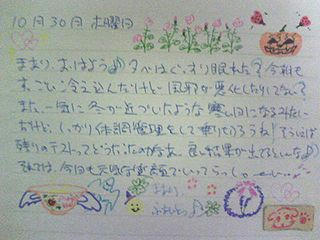 10月30日 木曜日
まおり、おはよう♪夕べはぐっすり眠れた？今朝も
すっごい冷え込んだけど、風邪が悪化したりしてない？
また一気に冬が近づいたような寒い日になるみたい
だけど、しっかり体調管理をして乗りきろうね！そういえば
残りのテストってどうだったのかなぁ。良い結果が出てるといいな♪
それでは、今日も元気な笑顔でいってらっしゃーい